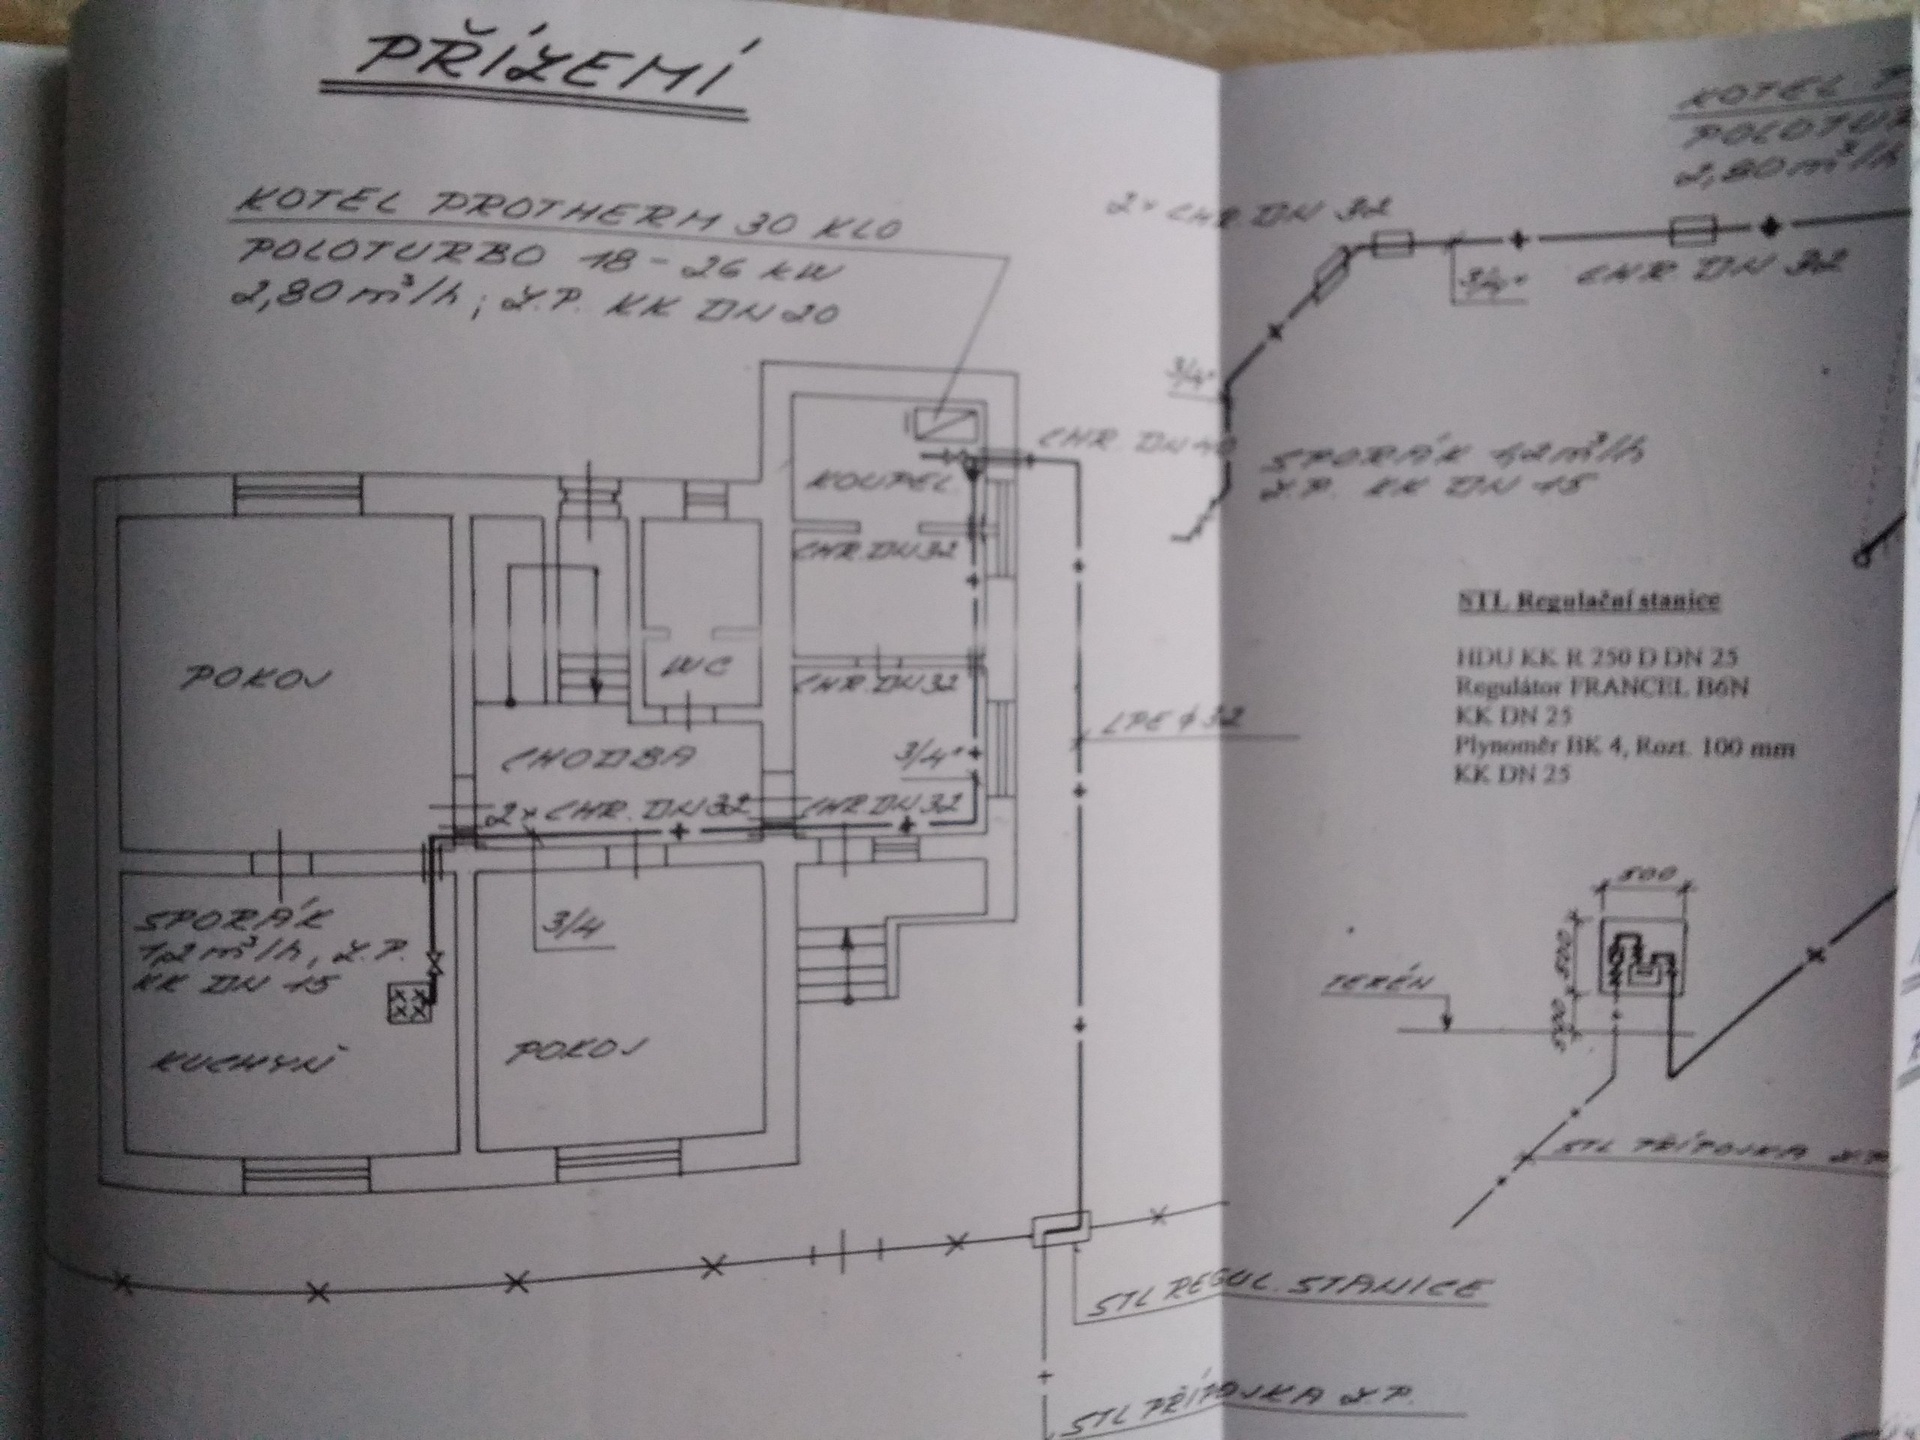 PŘÍZEMÍ
KOTEL PROTHERM 30 KLO
POLOTURBO 18-26 KW
2,80 m³/h; Z.P. KK DN 20
KOUPEL.
CHR. DN 40
CHR. DN 32
POKOJ
WC
CHR. DN 32
LPE ϕ 32
CHODBA
3/4"
2× CHR. DN 32
CHR. DN 32
SPORÁK
1,2 m³/h, Z.P.
KK DN 15
3/4
KUCHYŇ
POKOJ
STL REGUL. STANICE
STL PŘÍPOJKA Z.P.
KOTEL
2,80 m³/h
2× CHR. DN 32
3/4"
CHR. DN 32
3/4"
SPORÁK 1,2 m³/h
Z.P. KK DN 15
STL Regulační stanice
HDU KK R 250 D DN 25
Regulátor FRANCEL B6N
KK DN 25
Plynoměr BK 4, Rozt. 100 mm
KK DN 25
500
500
TERÉN
500
STL PŘÍPOJKA Z.P.